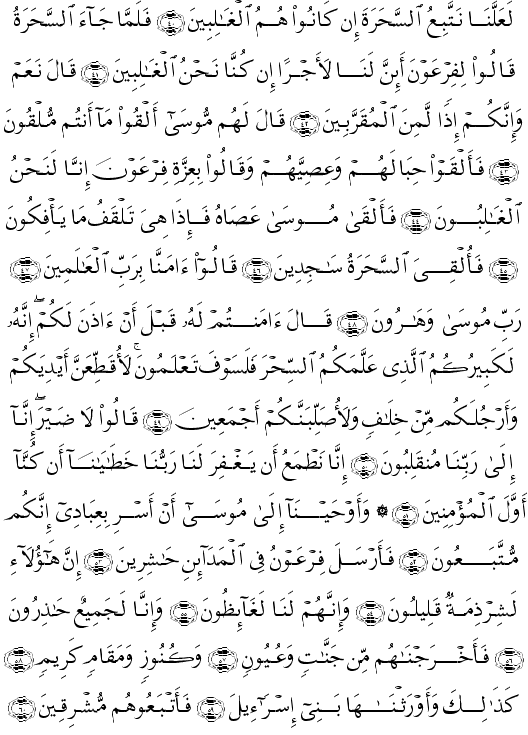 لَعَلَّنَا نَتَّبِعُ ٱلسَّحَرَةَ إِن كَانُوا۟ هُمُ ٱلْغَـٰلِبِينَ ﴿٤٠﴾ فَلَمَّا جَآءَ ٱلسَّحَرَةُ
قَالُوا۟ لِفِرْعَوْنَ أَئِنَّ لَنَا لَأَجْرًا إِن كُنَّا نَحْنُ ٱلْغَـٰلِبِينَ ﴿٤١﴾ قَالَ نَعَمْ
وَإِنَّكُمْ إِذًا لَّمِنَ ٱلْمُقَرَّبِينَ ﴿٤٢﴾ قَالَ لَهُم مُّوسَىٰٓ أَلْقُوا۟ مَآ أَنتُم مُّلْقُونَ
﴿٤٣﴾ فَأَلْقَوْا۟ حِبَالَهُمْ وَعِصِيَّهُمْ وَقَالُوا۟ بِعِزَّةِ فِرْعَوْنَ إِنَّا لَنَحْنُ
ٱلْغَـٰلِبُونَ ﴿٤٤﴾ فَأَلْقَىٰ مُوسَىٰ عَصَاهُ فَإِذَا هِىَ تَلْقَفُ مَا يَأْفِكُونَ
﴿٤٥﴾ فَأُلْقِىَ ٱلسَّحَرَةُ سَـٰجِدِينَ ﴿٤٦﴾ قَالُوٓا۟ ءَامَنَّا بِرَبِّ ٱلْعَـٰلَمِينَ ﴿٤٧﴾
رَبِّ مُوسَىٰ وَهَـٰرُونَ ﴿٤٨﴾ قَالَ ءَامَنتُمْ لَهُۥ قَبْلَ أَنْ ءَاذَنَ لَكُمْ ۖ إِنَّهُۥ
لَكَبِيرُكُمُ ٱلَّذِى عَلَّمَكُمُ ٱلسِّحْرَ فَلَسَوْفَ تَعْلَمُونَ ۚ لَأُقَطِّعَنَّ أَيْدِيَكُمْ
وَأَرْجُلَكُم مِّنْ خِلَـٰفٍ وَلَأُصَلِّبَنَّكُمْ أَجْمَعِينَ ﴿٤٩﴾ قَالُوا۟ لَا ضَيْرَ ۖ إِنَّآ
إِلَىٰ رَبِّنَا مُنقَلِبُونَ ﴿٥٠﴾ إِنَّا نَطْمَعُ أَن يَغْفِرَ لَنَا رَبُّنَا خَطَـٰيَـٰنَآ أَن كُنَّآ
أَوَّلَ ٱلْمُؤْمِنِينَ ﴿٥١﴾ ۞ وَأَوْحَيْنَآ إِلَىٰ مُوسَىٰٓ أَنْ أَسْرِ بِعِبَادِىٓ إِنَّكُم
مُّتَّبَعُونَ ﴿٥٢﴾ فَأَرْسَلَ فِرْعَوْنُ فِى ٱلْمَدَآئِنِ حَـٰشِرِينَ ﴿٥٣﴾ إِنَّ هَـٰٓؤُلَآءِ
لَشِرْذِمَةٌ قَلِيلُونَ ﴿٥٤﴾ وَإِنَّهُمْ لَنَا لَغَآئِظُونَ ﴿٥٥﴾ وَإِنَّا لَجَمِيعٌ حَـٰذِرُونَ
﴿٥٦﴾ فَأَخْرَجْنَـٰهُم مِّن جَنَّـٰتٍ وَعُيُونٍ ﴿٥٧﴾ وَكُنُوزٍ وَمَقَامٍ كَرِيمٍ ﴿٥٨﴾
كَذَٰلِكَ وَأَوْرَثْنَـٰهَا بَنِىٓ إِسْرَٰٓءِيلَ ﴿٥٩﴾ فَأَتْبَعُوهُم مُّشْرِقِينَ ﴿٦٠﴾